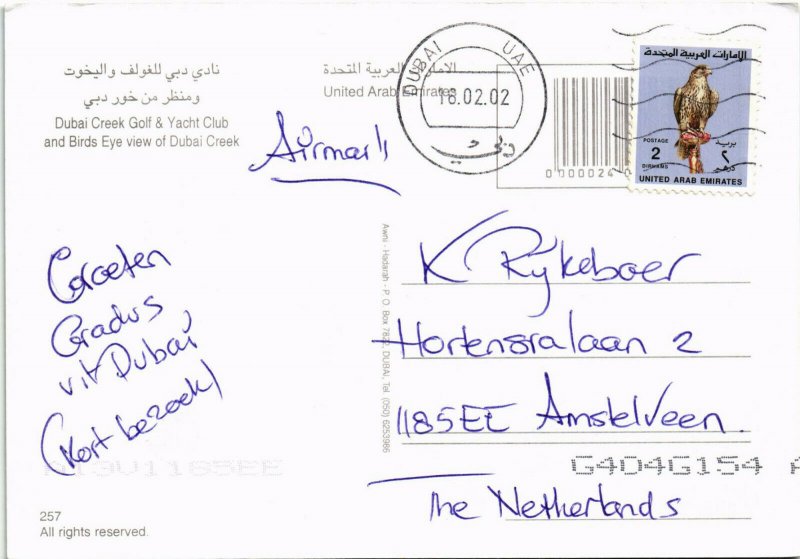 نادي دبي للغولف واليخوت
ومنظر من خور دبي
Dubai Creek Golf & Yacht Club
and Birds Eye view of Dubai Creek
الامارات العربية المتحدة
United Arab Emirates
DUBAI UAE
16.02.02
دبي
الامارات العربية المتحدة
POSTAGE
2
DIRHAMS
بريد
٢
درهم
UNITED ARAB EMIRATES
Airmail
Groeten
Gradus
uit Dubai
(Kort bezoek)
Awni - Hadarah - P. O. Box 7822 DUBAI, Tel. (050) 6253986
K Rijkeboer
Hortensialaan 2
1185EE Amstelveen.
The Netherlands
G4D4G154
257
All rights reserved.